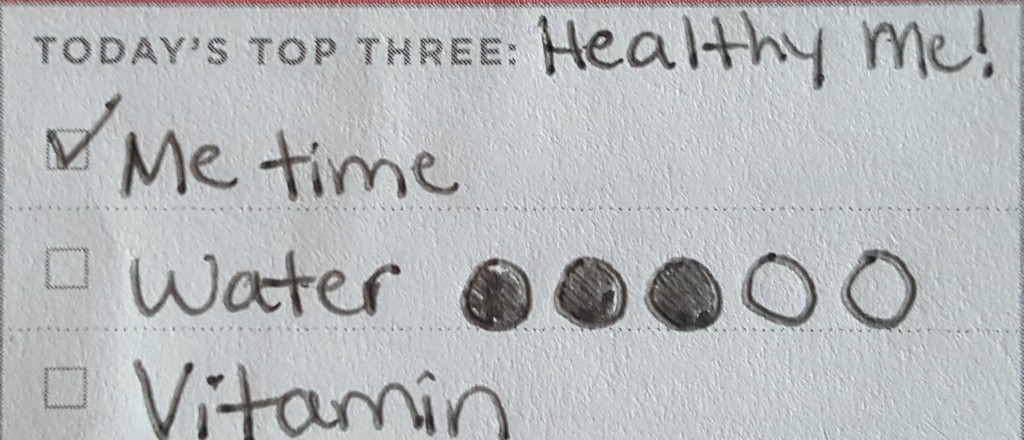 TODAY'S TOP THREE: Healthy me!
Me time
Water
Vitamin